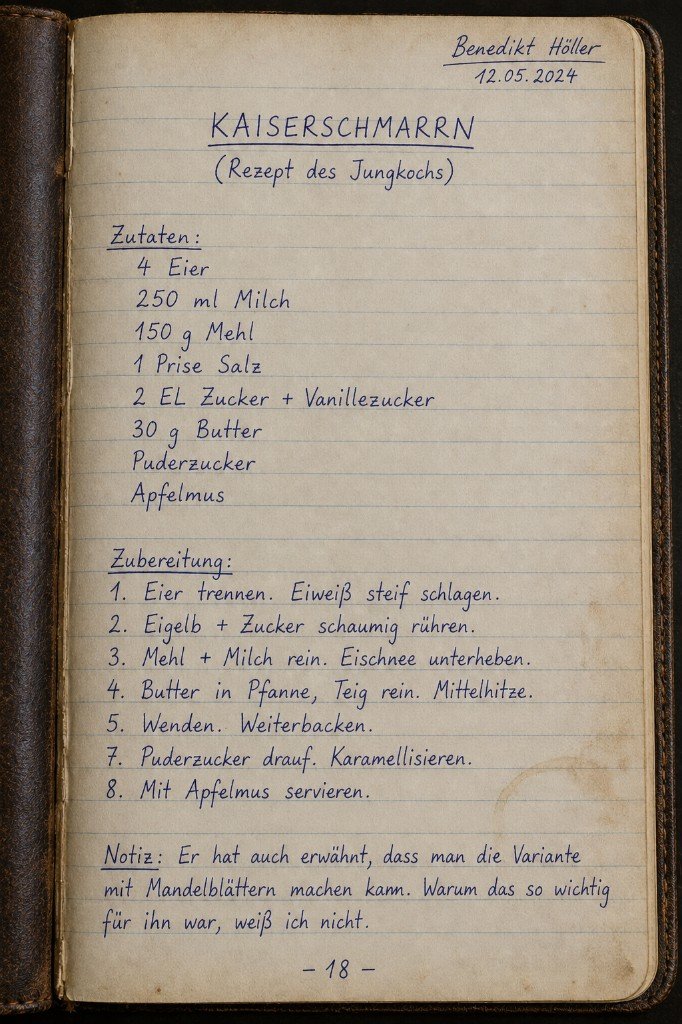 Benedikt Höller
12.05.2024
KAISERSCHMARRN
(Rezept des Jungkochs)
Zutaten:
4 Eier
250 ml Milch
150 g Mehl
1 Prise Salz
2 EL Zucker + Vanillezucker
30 g Butter
Puderzucker
Apfelmus
Zubereitung:
1. Eier trennen. Eiweiß steif schlagen.
2. Eigelb + Zucker schaumig rühren.
3. Mehl + Milch rein. Eischnee unterheben.
4. Butter in Pfanne, Teig rein. Mittelhitze.
5. Wenden. Weiterbacken.
7. Puderzucker drauf. Karamellisieren.
8. Mit Apfelmus servieren.
Notiz: Er hat auch erwähnt, dass man die Variante
mit Mandelblättern machen kann. Warum das so wichtig
für ihn war, weiß ich nicht.
- 18 -